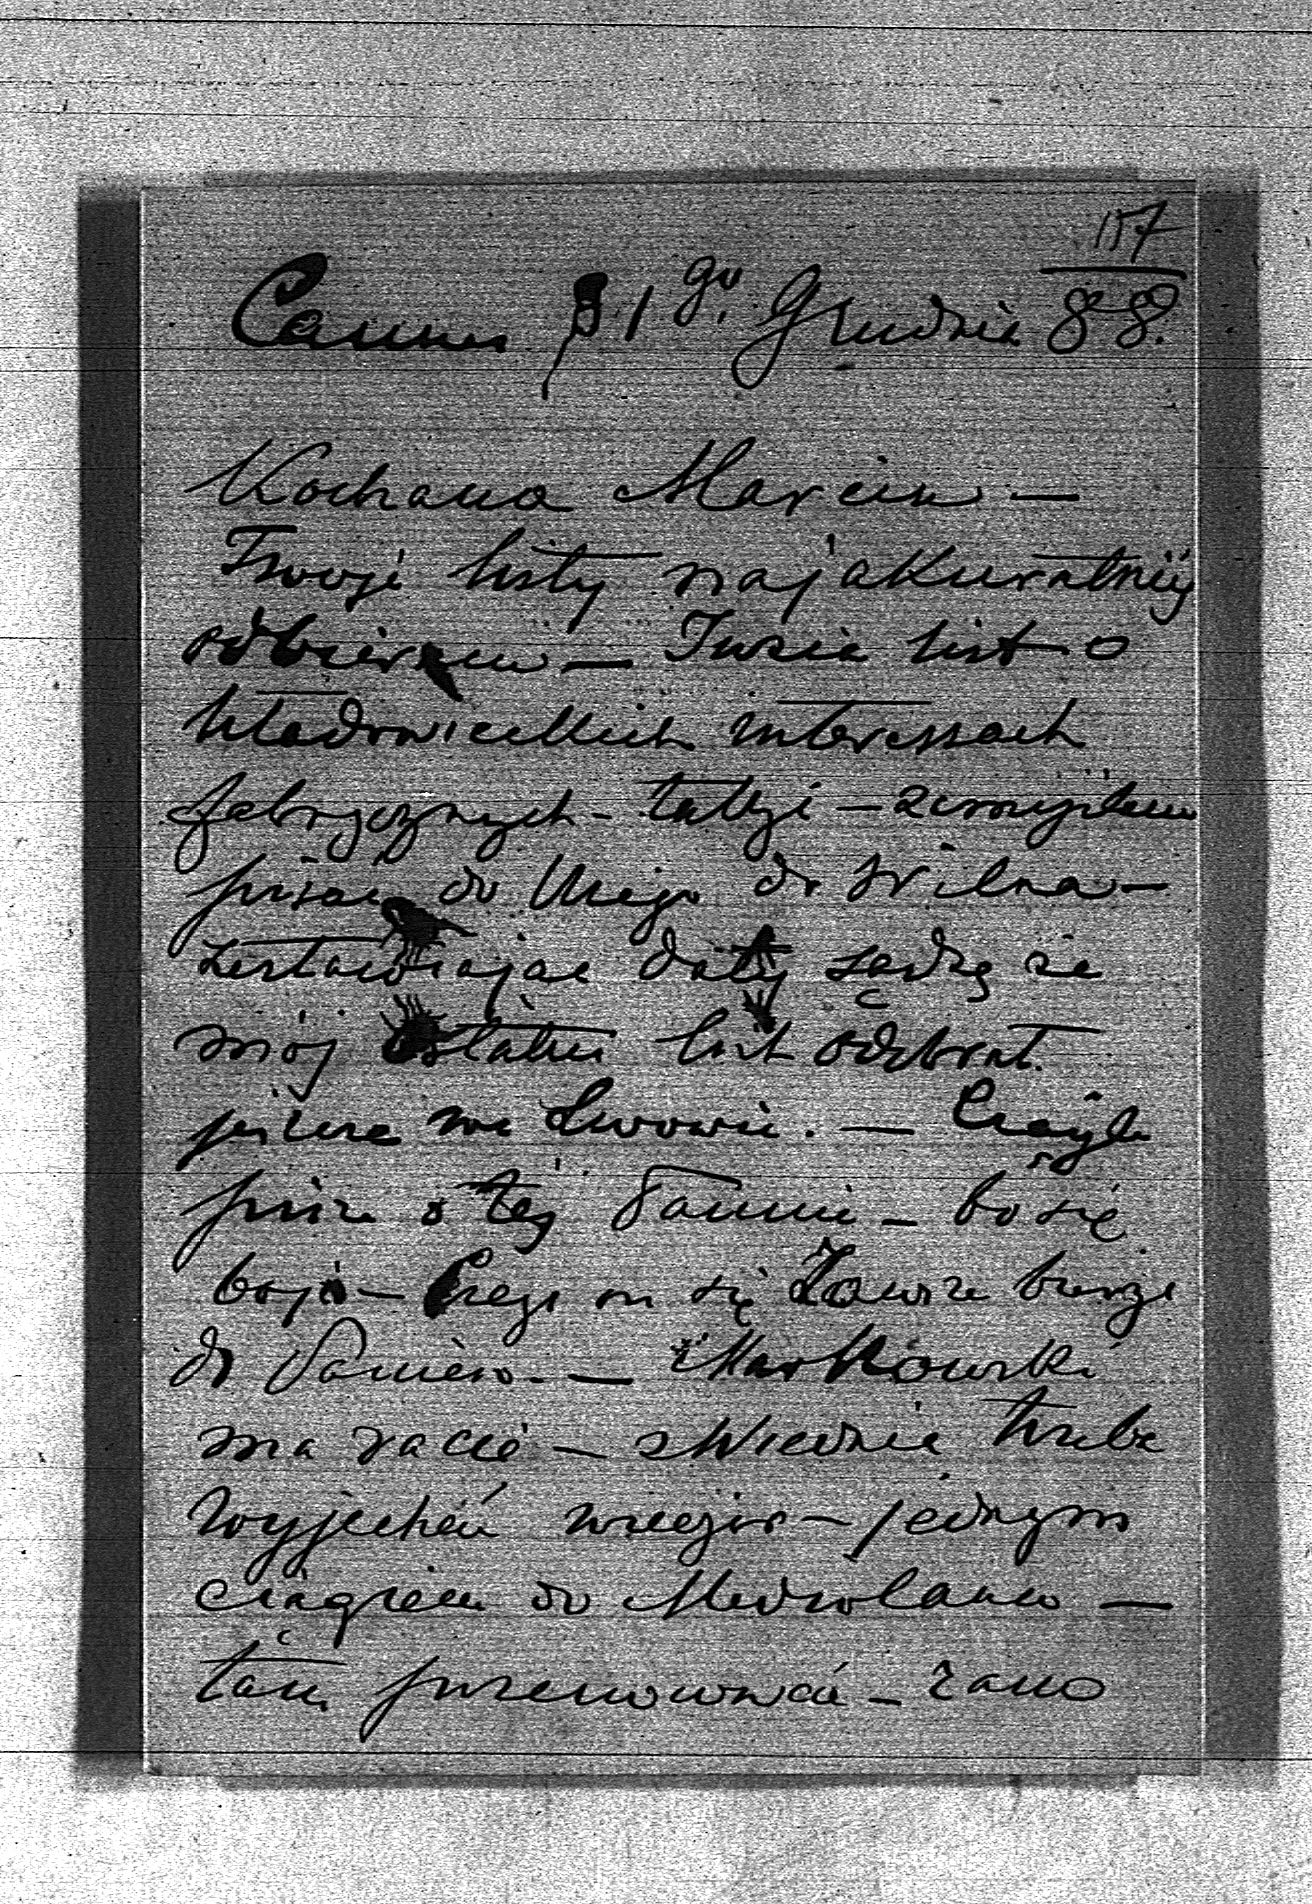 117
Cannes 31go. Grudnia 88.
Kochana Marciu —
Twoje listy najakuratniéj
odbieram — Juzia list o
hładowickich interessach
fabrycznych - także — zamyślam
pisać do Niego do Wilna —
zestawiając daty sądzę że
mój ostatni list odebrał
jeszcze we Lwowie. — Ciągle
pisze o téj Pannie — bo się
boję — Czego on się Zawsze bierze
do Panien. — Markowski
ma racię — z Wiednia trzeba
wyjechać — jednym
ciągiem do Mediolanu —
tam przenocować — rano